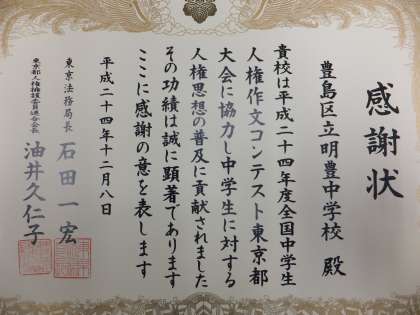 感謝状
豊島区立明豊中学校 殿
貴校は平成二十四年度全国中学生
人権作文コンテスト東京都
大会に協力し中学生に対する
人権思想の普及に貢献されました
その功績は誠に顕著であります
ここに感謝の意を表します
平成二十四年十二月八日
東京法務局長 石田一宏
東京都人権擁護委員連合会長 油井久仁子